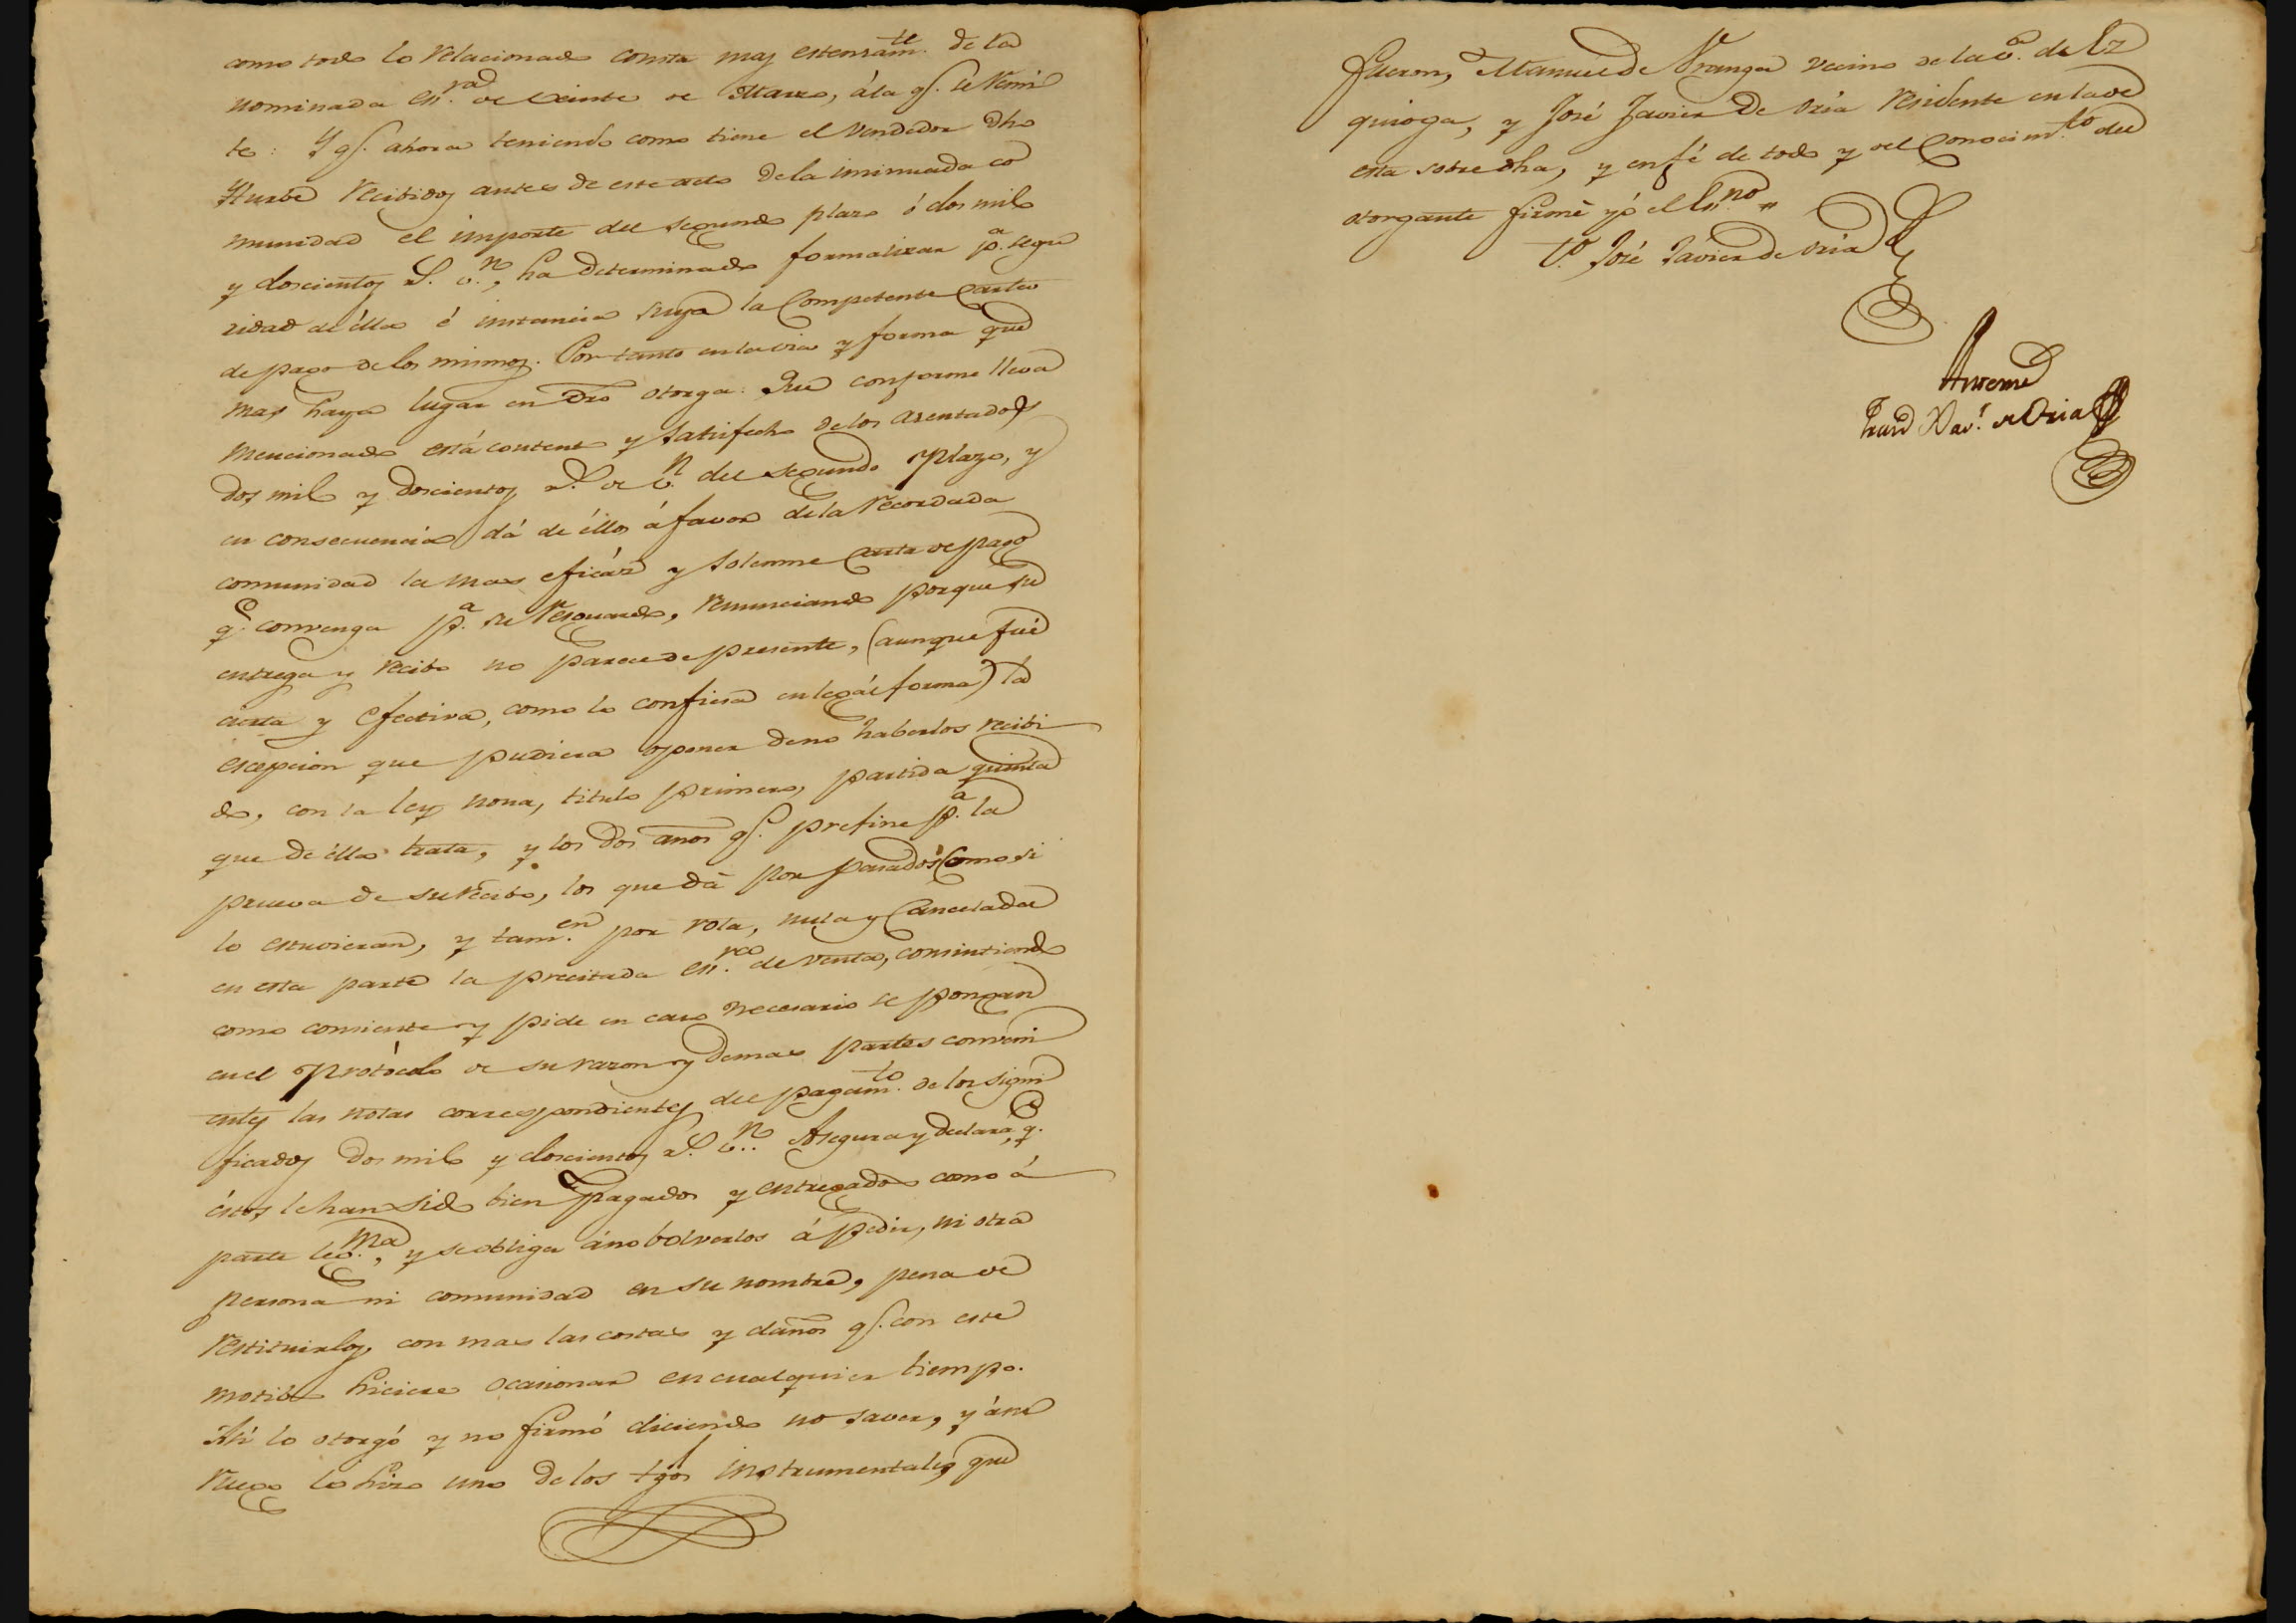 como todo lo relacionado consta mas estensam.te de la
nominada es.ra de veinte de Marzo, á la q.e se remi
te: Y q.e ahora teniendo como tiene el vendedor dho
Yturbe recibidos antes de este acto de la insinuada co
munidad el importe del segundo plazo ó dos mil
y doscientos r.s v.n, ha determinado formalizar p.a segu
ridad de élla é instancia suya la competente carta
de pago de los mismos. Por tanto en la via y forma que
mas haya lugar en dro otorga: Que conforme lleva
mencionado está contento y satisfecho de los asentados
dos mil y doscientos r.s de v.n del segundo plazo, y
en consecuencia dá de éllos á favor de la recordada
comunidad la mas eficáz y solemne carta de pago
q.e convenga p.a su resguardo, renunciando porque su
entrega y recibo no parece de presente, (aunque fué
cierta y efectiva, como lo confiesa en legál forma) la
escepcion que pudiera oponer de no haberlos recibi
do, con la ley nona, titulo primero, partida quinta
que de élla trata, y los dos años q.e prefine p.a la
prueva de su recibo, los que dá por pasados como si
lo estuvieran, y tam.en por rota, nula y cancelada
en esta parte la precitada es.ra de venta, consintiendo
como consiente y pide en caso necesario se pongan
en el protócolo de su razon y demas partes conveni
entes las notas correspondientes del pagam.to de los signi
ficados dos mil y doscientos r.s v.n. Asegura y declara, q.e
éstos le han sido bien pagados y entregados como á
parte leg.ma, y se obliga á no bolverlos á pedir, ni otra
persona ni comunidad en su nombre, pena de
restituirlos, con mas las costas y daños q.e con este
motibo hiciere ocasionar en cualquier tiempo.
Así lo otorgó y no firmó diciendo no saver, y á su
ruego lo hizo uno de los tgos instrumentales que
fueron, Manuel de Uranga vecino de la v.a de Ez
quioga, y José Javier de Oria residente en la de
esta sobre dha, y en fé de todo y del conocim.to del
otorgante firmé yó el Es.no
t.o José Javier de Oria
Antemi
Juan Xav.r de Oria